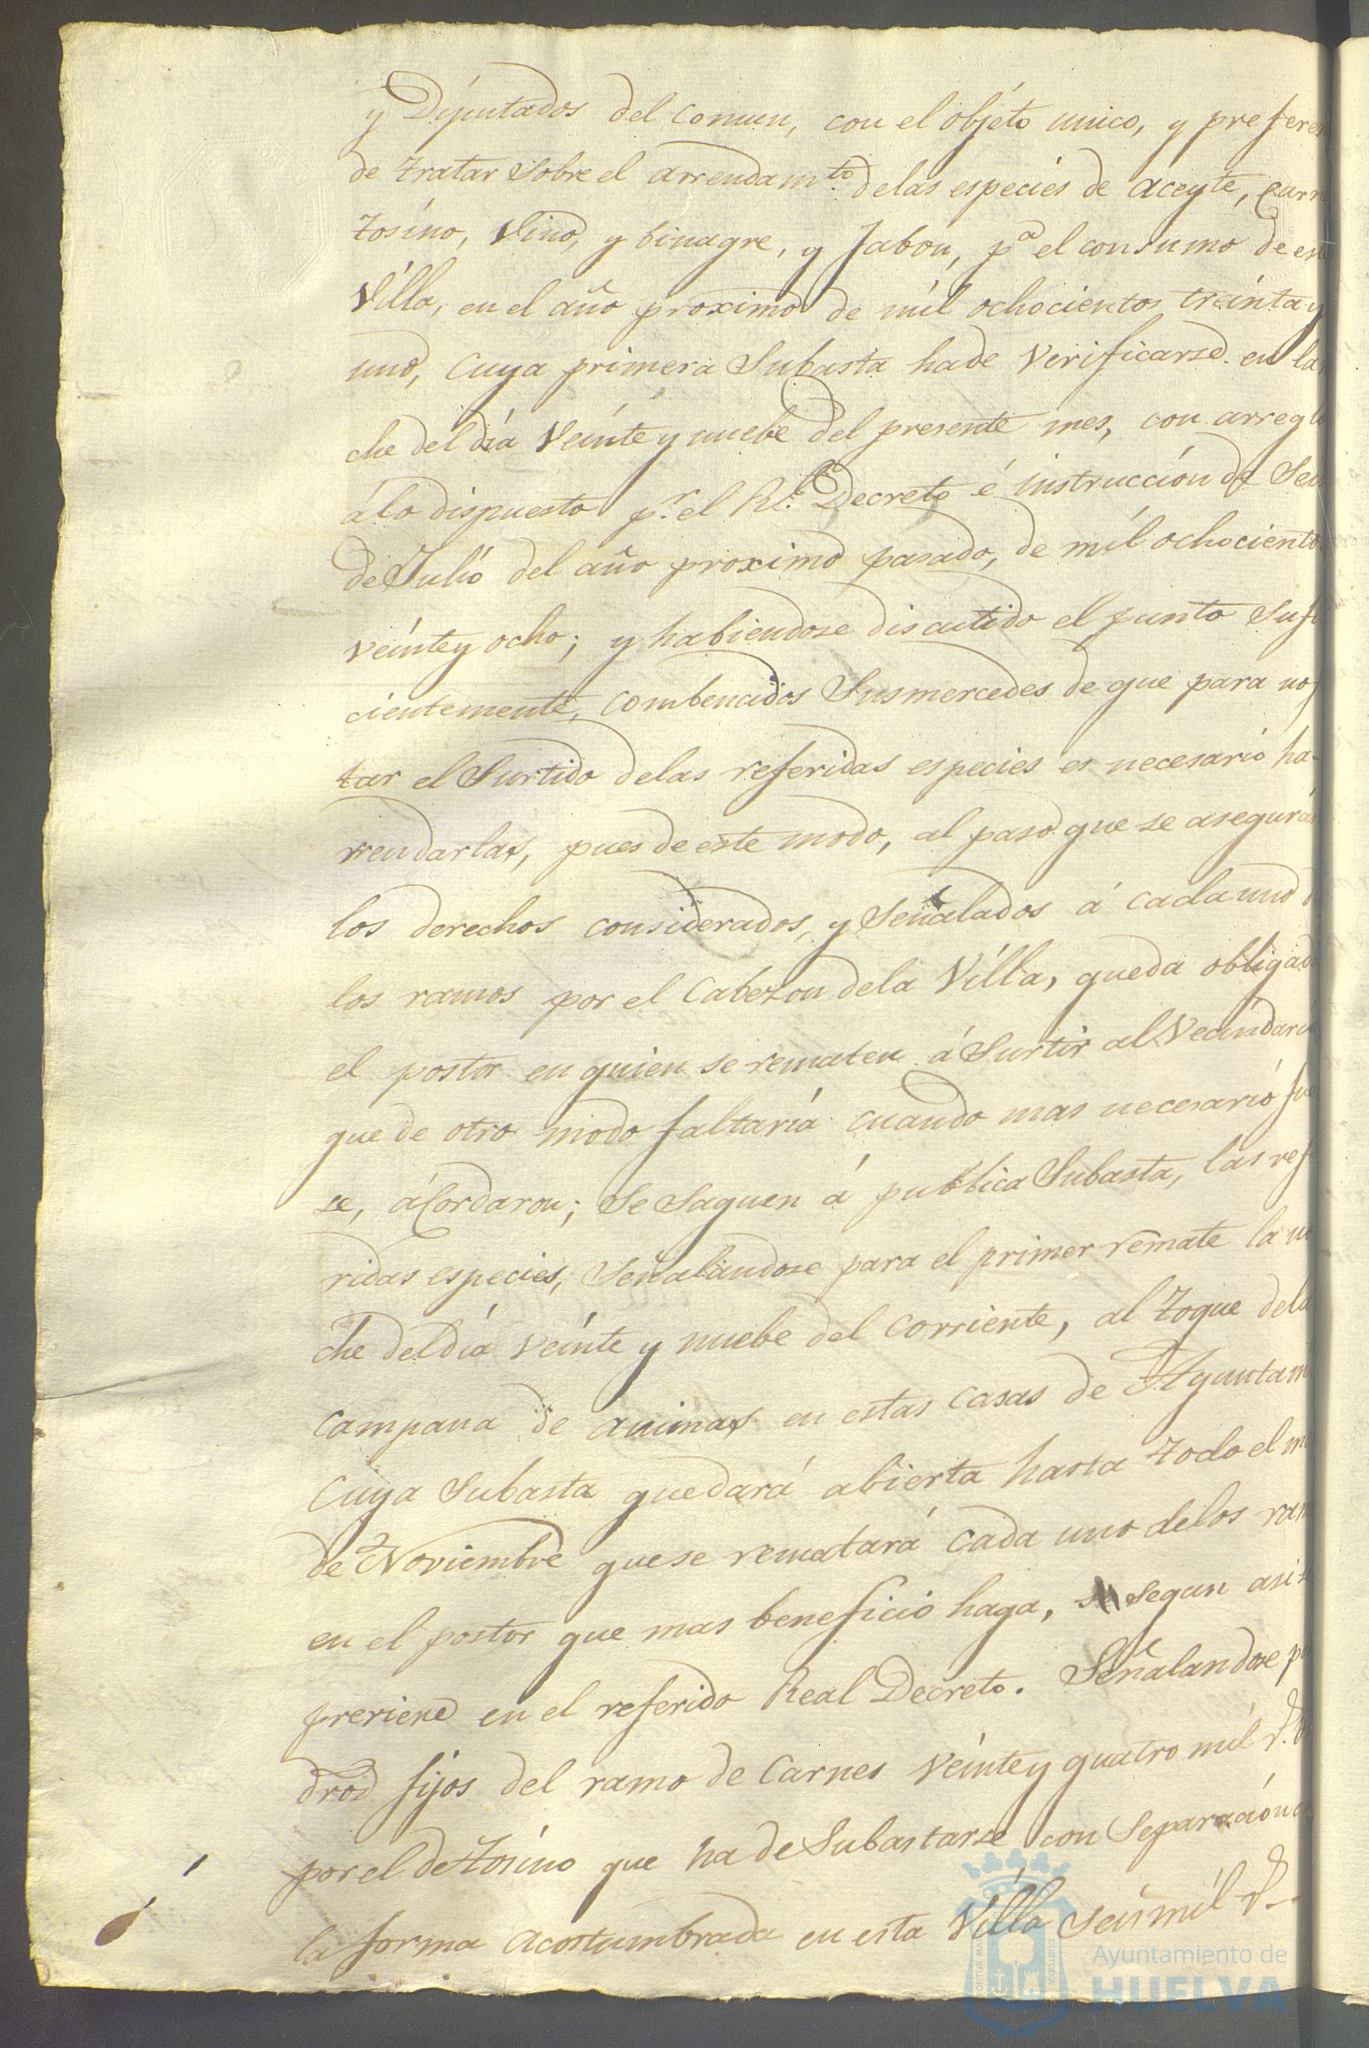 y Díputados del Comun, con el objéto unico, y prefere
de tratar sobre el arrendam.to delas especiés de aceyte, Carn
tosíno, Vino, y binagre, y Jabon, p.a el consumo de es
Vílla, en el año proximo de míl ochocientos treínta y
uno, cuya primera Subasta hade Verificarse en la
che del día Veínte y nuebe del presente mes, con arreglo
álo dispuesto p.r el Rl. Decreto é instrucción de Seis
de Julío del año proximo pasado, de míl ochociento
veínte y ocho; y habiendose discutido el punto Sufi
cientemente, combencidos Susmercedes de que para no f
tar el Surtido delas referidas especies es necesarío ha-
rrendarlas, pues de este modo, al paso que se asegurán
los derechos considerados, y Señalados á cada uno d
los ramos por el Cabezon dela Vílla, queda obligado
el postor en quien se rematen á Surtir al Vecíndario
que de otro modo faltaría cuando mas necesarío fue
se, áCordaron; Se Saquen á publica Subasta, las refe
ridas especies, Señalandose para el primer remate la no
che del día veínte y nuebe del corriente, al toque dela
campana de animas en estas casas de Ayuntam
Cuya Subasta quedará abierta hasta todo el m
de Noviembre que se rematará cada uno delos ram
en el postor que mas beneficio haga, segun asi s
previene en el referido Real Decreto. Señalandose p
dros fijos del ramo de Carnes Veínte y quatro míl r.s
por el de tosíno que ha de Subastarse con Separación e
la forma acostumbrada en esta Vílla Seis míl r.s
Ayuntamiento de
HUELVA